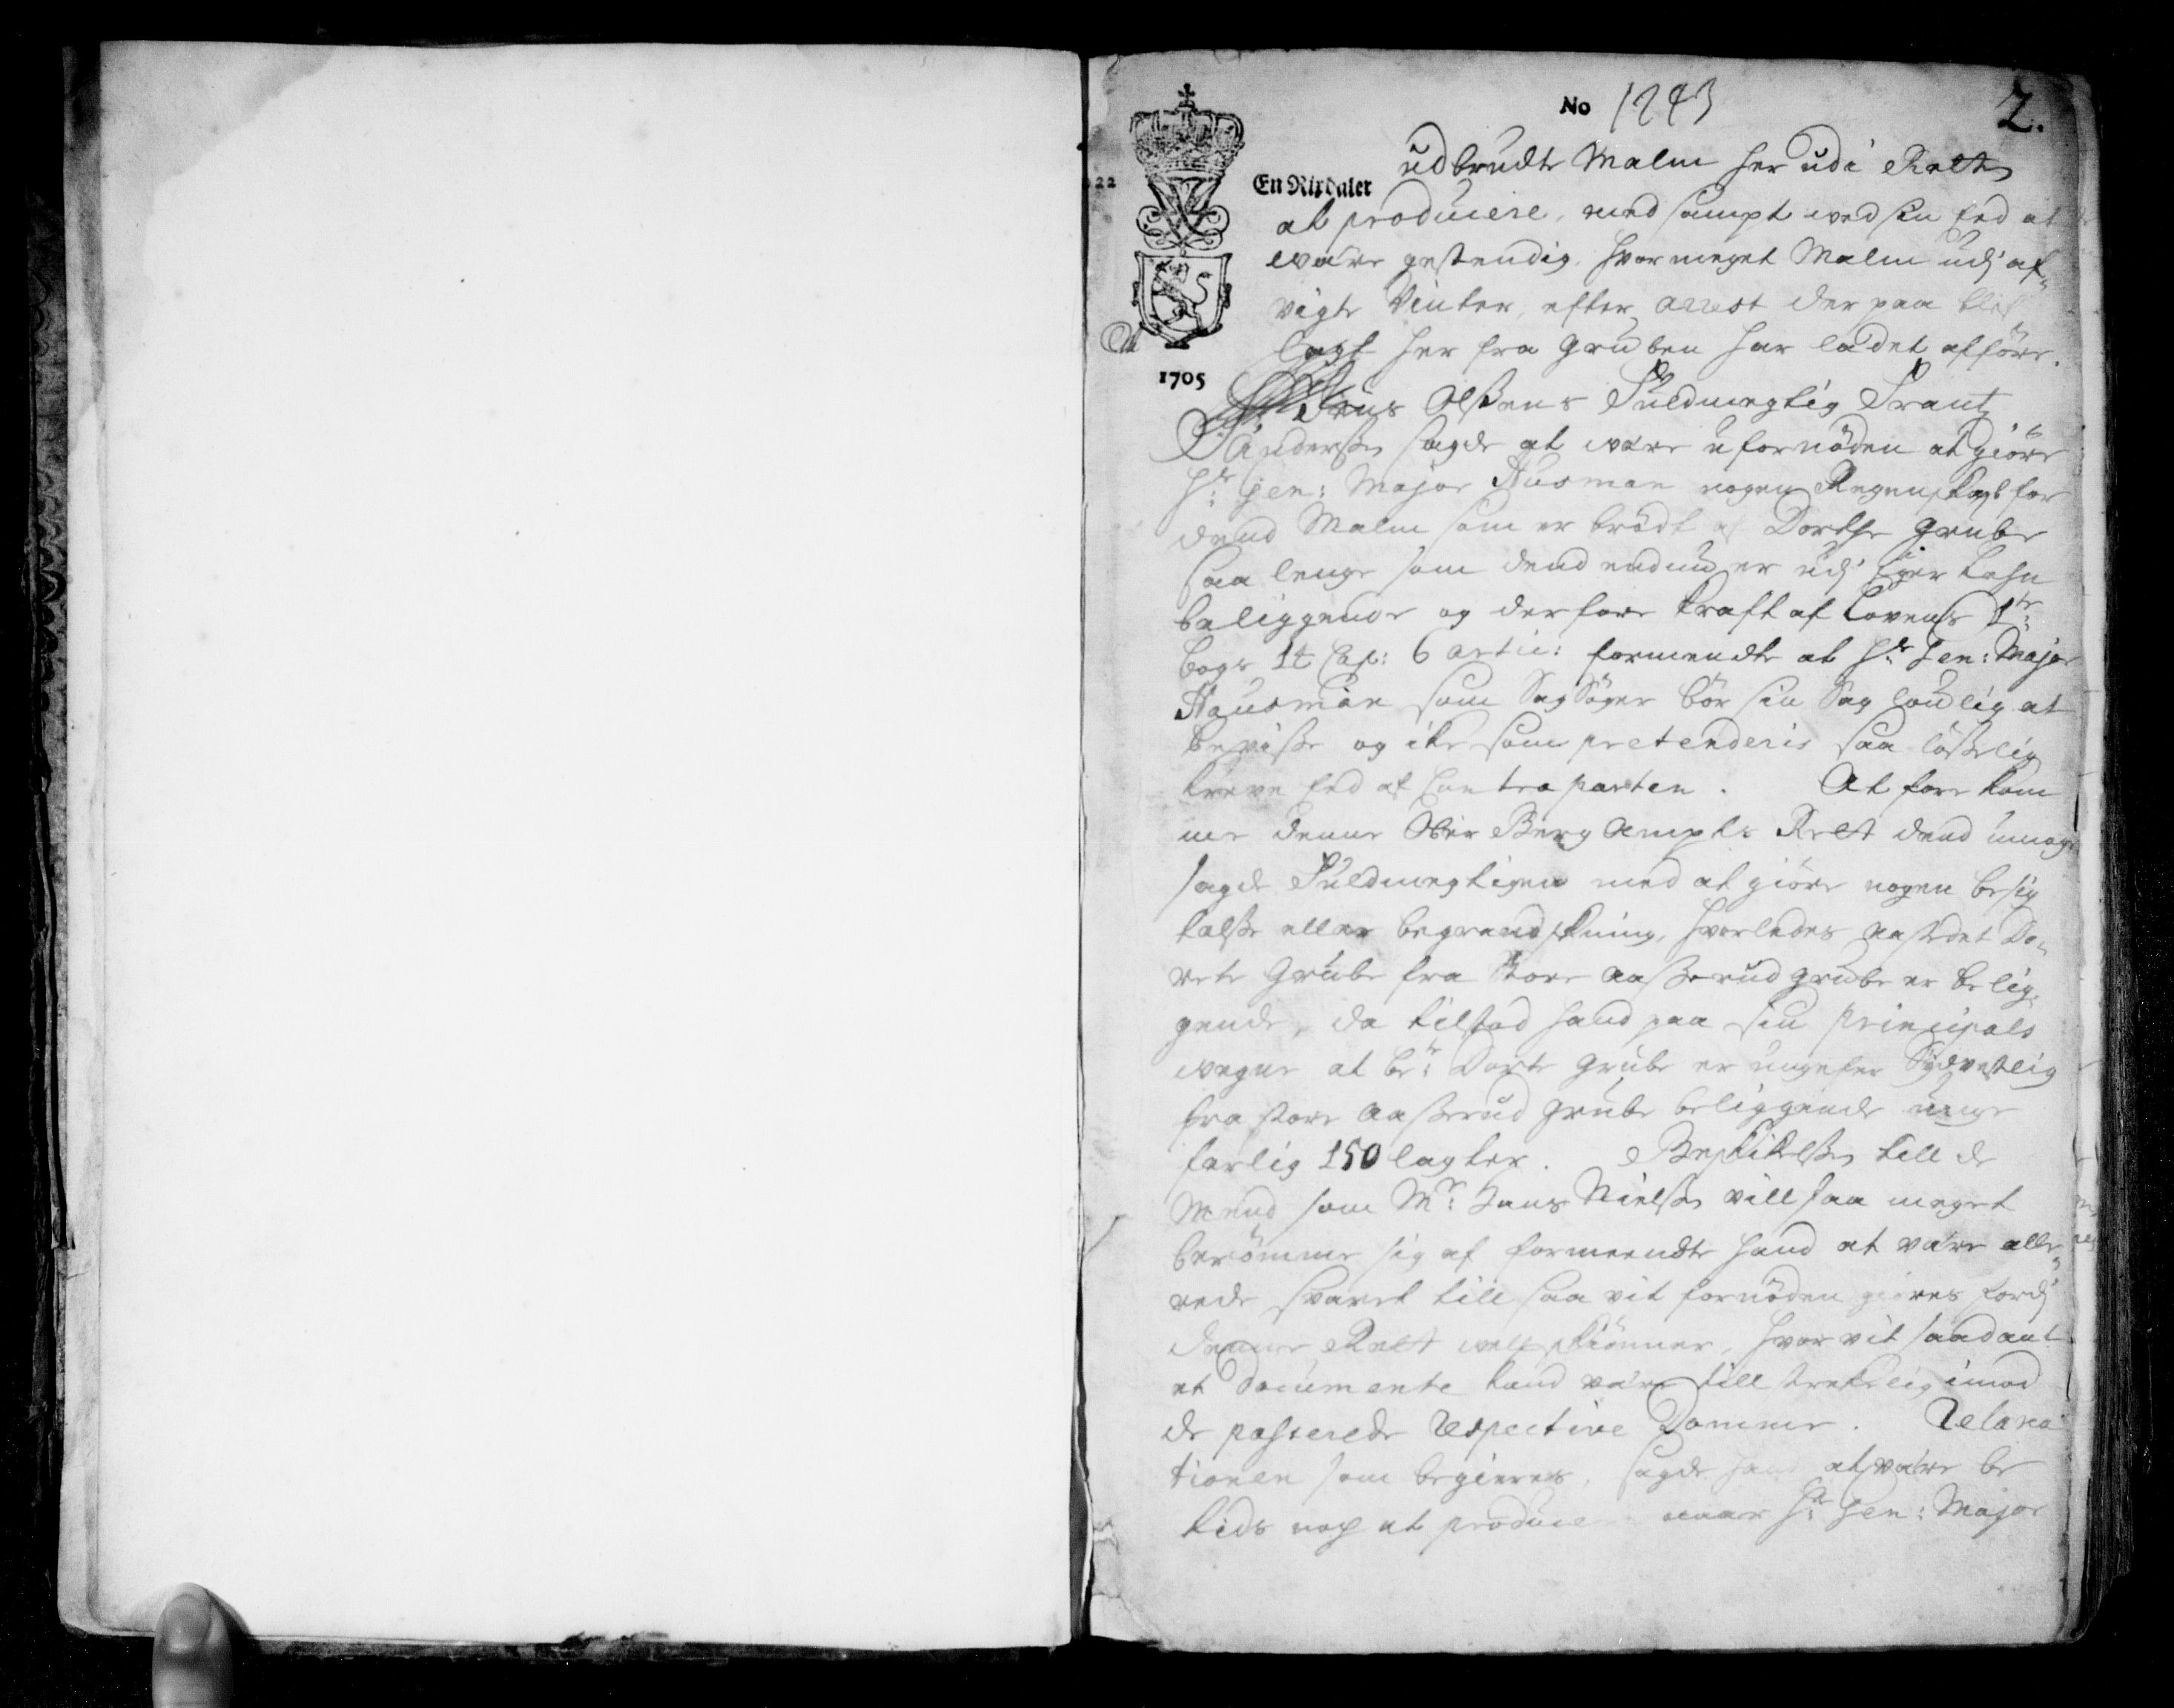 No 1243
2.
22
En Rixdaler
udbrudte Malm her udi Retten
at producere, med sampt ved sin Eed at
være gestendig hvor meget Malm udj af„
vigte Vinter, efter arrest der paa blef
lagt her fra Gruben har ladet afföre.
1705
Jens Olßens Fuldmegtig Frantz
Anderßen sagde at være ufornöden at giöre
Hr: Gen: Major Husman nogen Regenskab for
dend Malm som er brödt af Dorthe grube
saa lenge som dend endnu er udj Eger Lehn
beliggende og derfore Kraft af Lovens 1te:
bogs 14 Cap: 6 artic: formeendte at Hr: Gen: Major
Hausman som SagSöger bör sin Sag lovlig at
beviße og ike som pretenderis saa lößelig
kreve Eed af Contraparten. At forekom
me denne Ober Berg Ampts Rett dend umag
sagde Fuldmegtigen med at giöre nogen besig
telße eller begrandskning, hvorledes aastedet Do„
rete Grube fra Store Aaßerud grube er belig„
gende, da tilstod hand paa sin principals
vegne at be:te Dorte grube er ungefer Sydvestlig
fra store Aaßerud grube beliggende unge
ferlig 150 lagter. Beskikelßen till de
Mend som Mr: Hans Nielßen vill saa meget
berömme sig af formeendte hand at være alle„
rede svaret till saa vit fornöden giöres fordj
denne Rett vell skiönner, hvor vit saadant
et Documente kand være till strekelig imod
de passerede respective Domme. Relaxa
tionen som begieres, sagde hand at være be
tids nog at producere naar Hr: Gen: Major